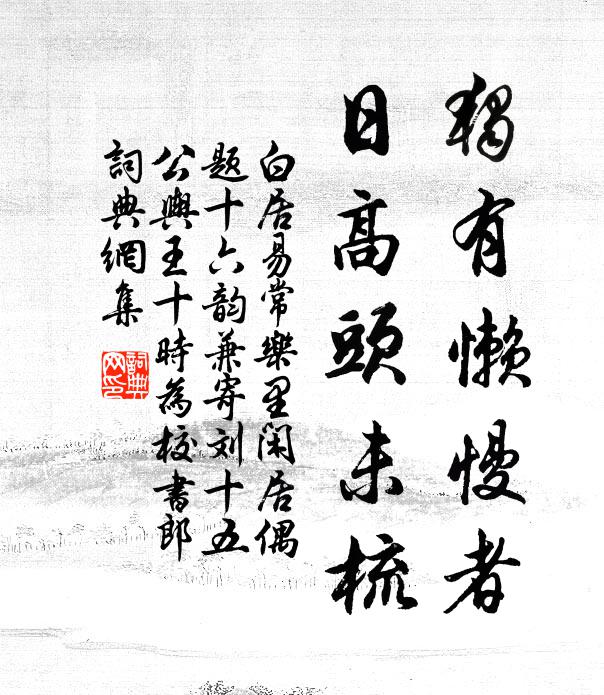 獨有懶慢者
日高頭未梳
白居易常樂里閑居偶
題十六韵兼寄刘十五
公輿王十時為校書郎
詞典網集
詞典
网印